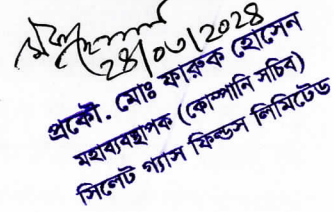 ২৪/০৩/২০২৪
প্রকৌ. মোঃ ফারুক হোসেন
মহাব্যবস্থাপক (কোম্পানি সচিব)
সিলেট গ্যাস ফিল্ডস লিমিটেড